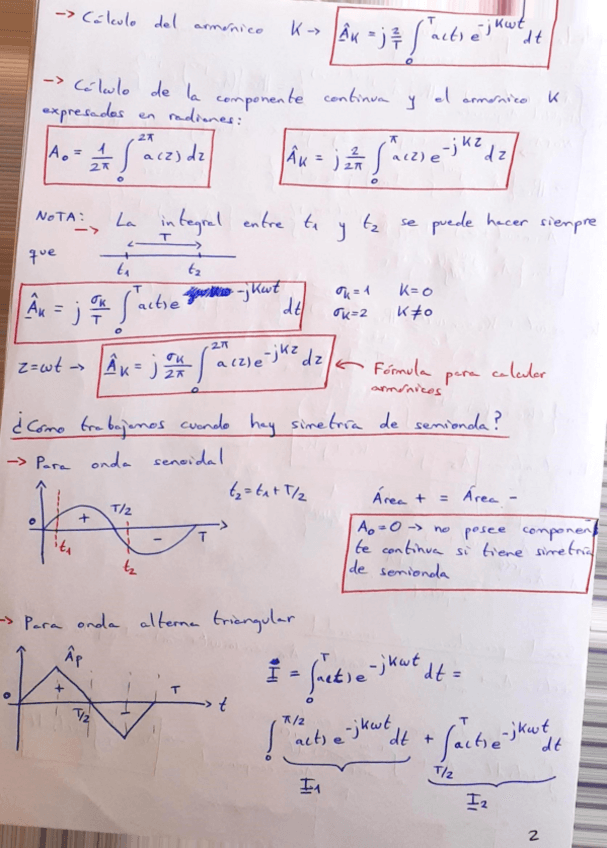 → Cálculo del armónico K → Â_K = j 2/T ∫_0^T a(t) e^-jKωt dt
→ Cálculo de la componente continua y el armónico K
expresados en radianes:
A_0 = 1/2π ∫_0^2π a(z) dz    Â_K = j 2/2π ∫_0^π a(z) e^-jKz dz
NOTA: → La integral entre t_1 y t_2 se puede hacer siempre
que T t_1 t_2
Â_K = j σ_K/T ∫_0^T a(t) e^-jKωt dt    σ_K = 1 K = 0
σ_K = 2 K ≠ 0
z = ωt → Â_K = j σ_K/2π ∫_0^2π a(z) e^-jKz dz ← Fórmula para calcular
armónicos
¿Cómo trabajamos cuando hay simetría de semionda?
→ Para onda senoidal
t_2 = t_1 + T/2    Área + = Área -
0 + T/2 - T t_1 t_2
A_0 = 0 → no posee componen
te continua si tiene simetría
de semionda
→ Para onda alterna triangular
Â_P
0 + T/2 - T t
I = ∫_0^T a(t) e^-jKωt dt =
∫_0^π/2 a(t) e^-jKωt dt + ∫_T/2^T a(t) e^-jKωt dt
I_1    I_2
2